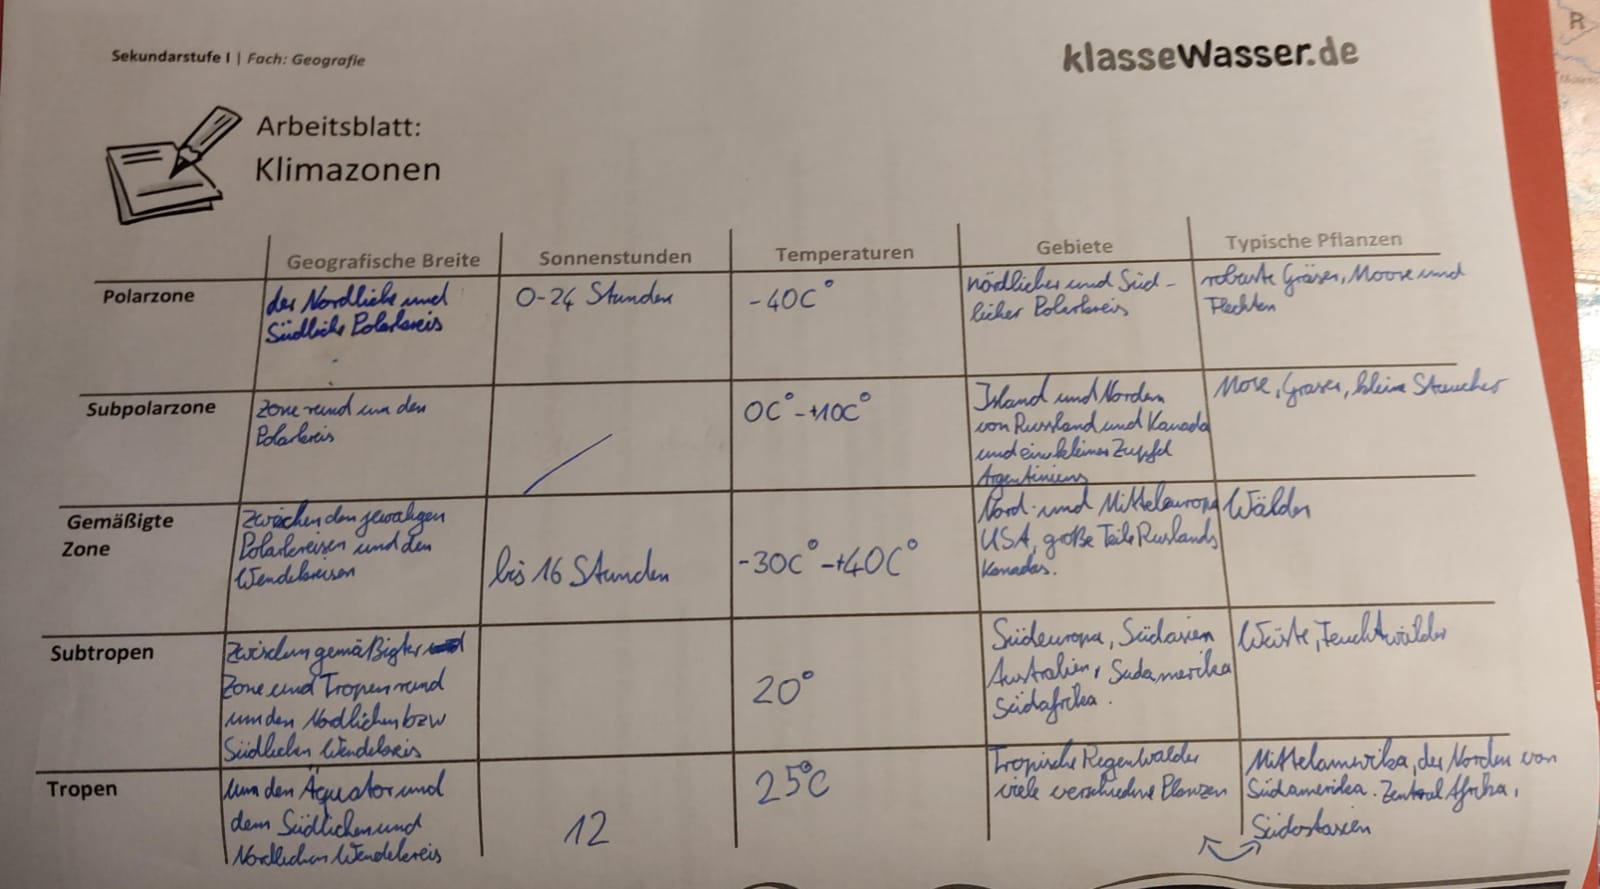 Sekundarstufe I | Fach: Geografie
klasseWasser.de
Arbeitsblatt:
Klimazonen
Geografische Breite
Sonnenstunden
Temperaturen
Gebiete
Typische Pflanzen
Polarzone
der Nordliche und
Südliche Polarkreis
0-24 Stunden
-40C°
nördlicher und Süd-
licher Polarkreis
robuste Gräser, Moose und
Flechten
Subpolarzone
Zone rund um den
Polarkreis
0C°-+10C°
Island und Norden
von Russland und Kanada
und ein kleiner Zupfel
Argentiniens
Mose, Graser, kleine Straucher
Gemäßigte
Zone
Zwischen den jewaligen
Polarkreisen und den
Wendekreisen
bis 16 Stunden
-30C°-+40C°
Nord- und Mitteleuropa
USA, große Teile Ruslands
Kanadas.
Wälder
Subtropen
Zwischen gemäßigter
Zone und Tropen rund
um den Nordlichen bzw
Südlichen Wendekreis
20°
Südeuropa, Südasien
Australien, Sudamerika
Südafrika.
Wüste, Feuchtwälder
Tropen
Um den Äquator und
dem Südlichen und
Nordlichen Wendekreis
12
25°C
Tropische Regenwalder
viele verschiedne Planzen
Mittelamerika, der Norden von
Südamerika. Zentral Afrika,
Südostasien